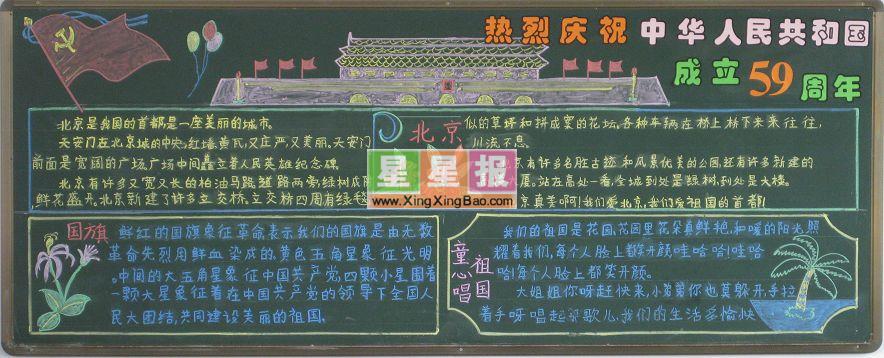 热烈庆祝中华人民共和国
成立59周年
北京是我国的首都,是一座美丽的城市。
天安门在北京城的中央,红墙黄瓦,又庄严,又美丽。天安门
前面是宽阔的广场,广场中间矗立着人民英雄纪念碑
北京有许多又宽又长的柏油马路,道路两旁,绿树成阴
鲜花盛开,北京新建了许多立交桥,立交桥四周有绿毯
北京
似的草坪和拼成窠的花坛,各种车辆在桥上桥下来来往往,
川流不息。
京有许多名胜古迹和风景优美的公园,还有许多新建的
厦。站在高处一看,全城到处是绿树,到处是大楼。
京真美啊!我们爱北京,我们爱祖国的首都!
星星报
www.XingXingBao.com
国旗
鲜红的国旗象征革命表示我们的国旗是由无数
革命先烈用鲜血染成的,黄色五角星象征光明
。中间的大五角星象征中国共产党,四颗小星围着
一颗大星象征着在中国共产党的领导下全国人
民大团结,共同建设美丽的祖国。
童心唱祖国
我们的祖国是花园,花园里花朵真鲜艳,和暖的阳光照
耀着我们,每个人脸上都笑开颜哇哈哈!哇哈
哈!每个人脸上都笑开颜。
大姐姐你呀赶快来,小弟弟你也莫躲开,手拉
着手呀唱起那歌儿,我们的生活多愉快